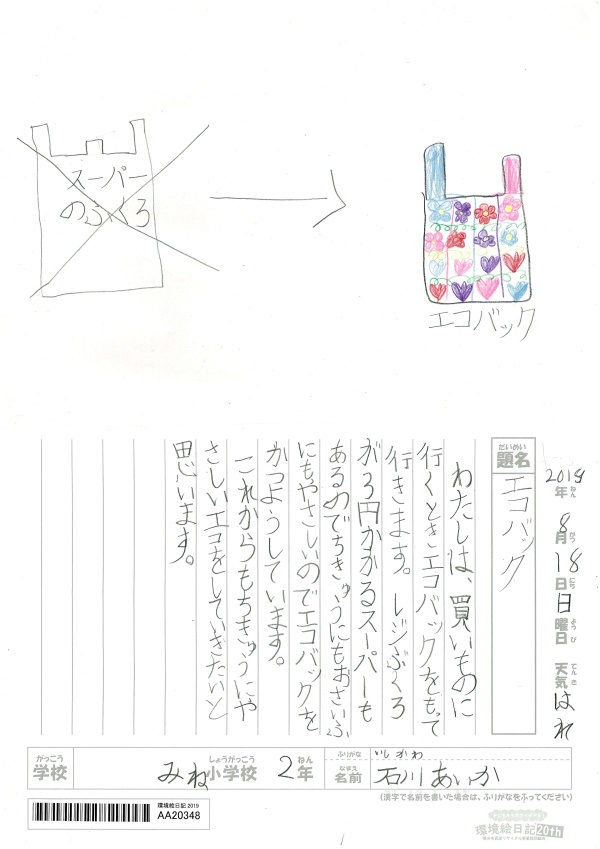 スーパー
のふくろ
エコバック
2019年ねん 8月がつ 18日にち 日曜日ようび 天気てんき はれ
だいめい
題名 エコバック
わたしは、買いものに
行くときエコバックをもって
行きます。レジぶくろ
が3円かかるスーパーも
あるのでちきゅうにもおさいふ
にもやさしいのでエコバックを
かつようしています。
これからもちきゅうにや
さしいエコをしていきたいと
思います。
がっこう しょうがっこう ねん
学校 みね小学校 2年
ふりがな いしかわ
なまえ
名前 石川あいか
(漢字で名前を書いた場合は、ふりがなをふってください)
環境絵日記 2019
AA20348
環境絵日記20th